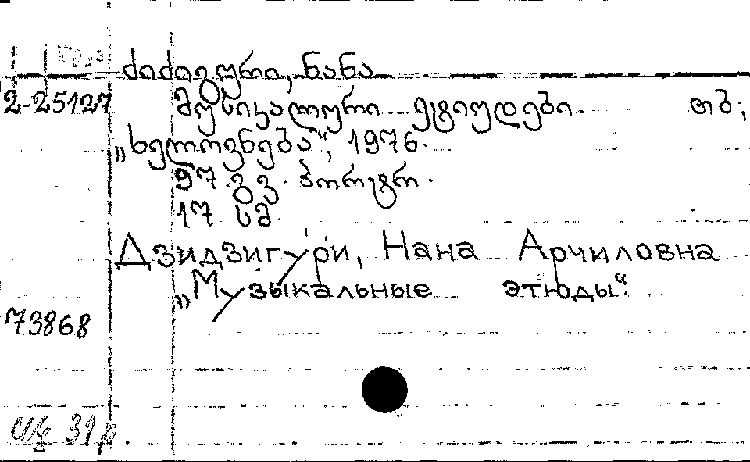 ძიძიგური, ნანა
2-25127 მუსიკალური ეტიუდები. თბ;
„ხელოვნება“, 1976.
97 გვ. პორტრ.
17 სმ
Дзидзигури, Нана Арчиловна
„Музыкальные этюды“.
73868